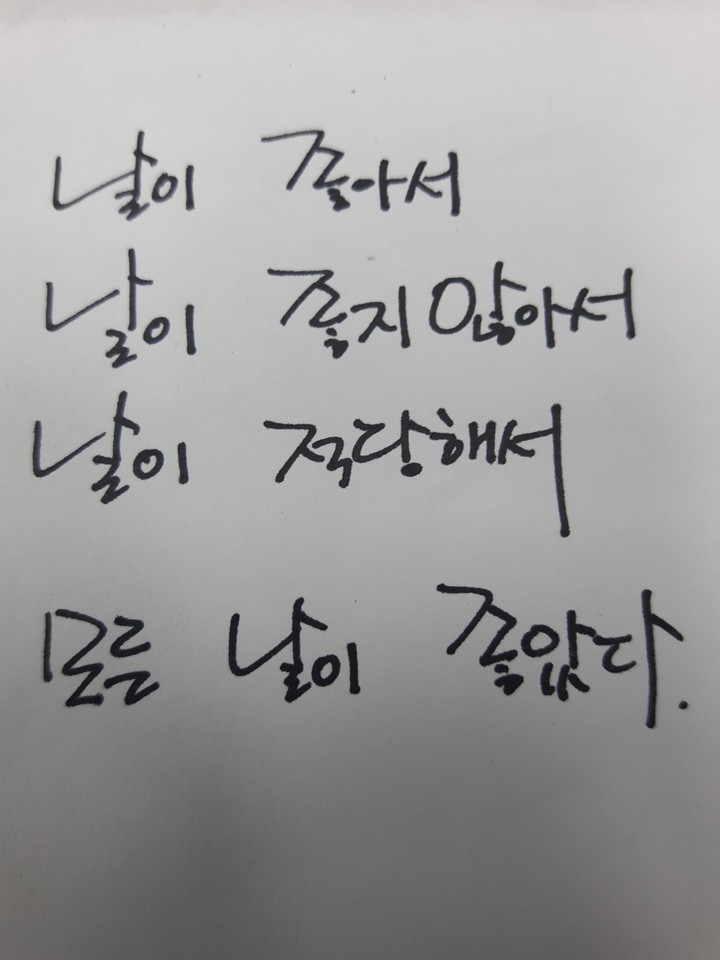 날이 좋아서
날이 좋지 않아서
날이 적당해서
모든 날이 좋았다.